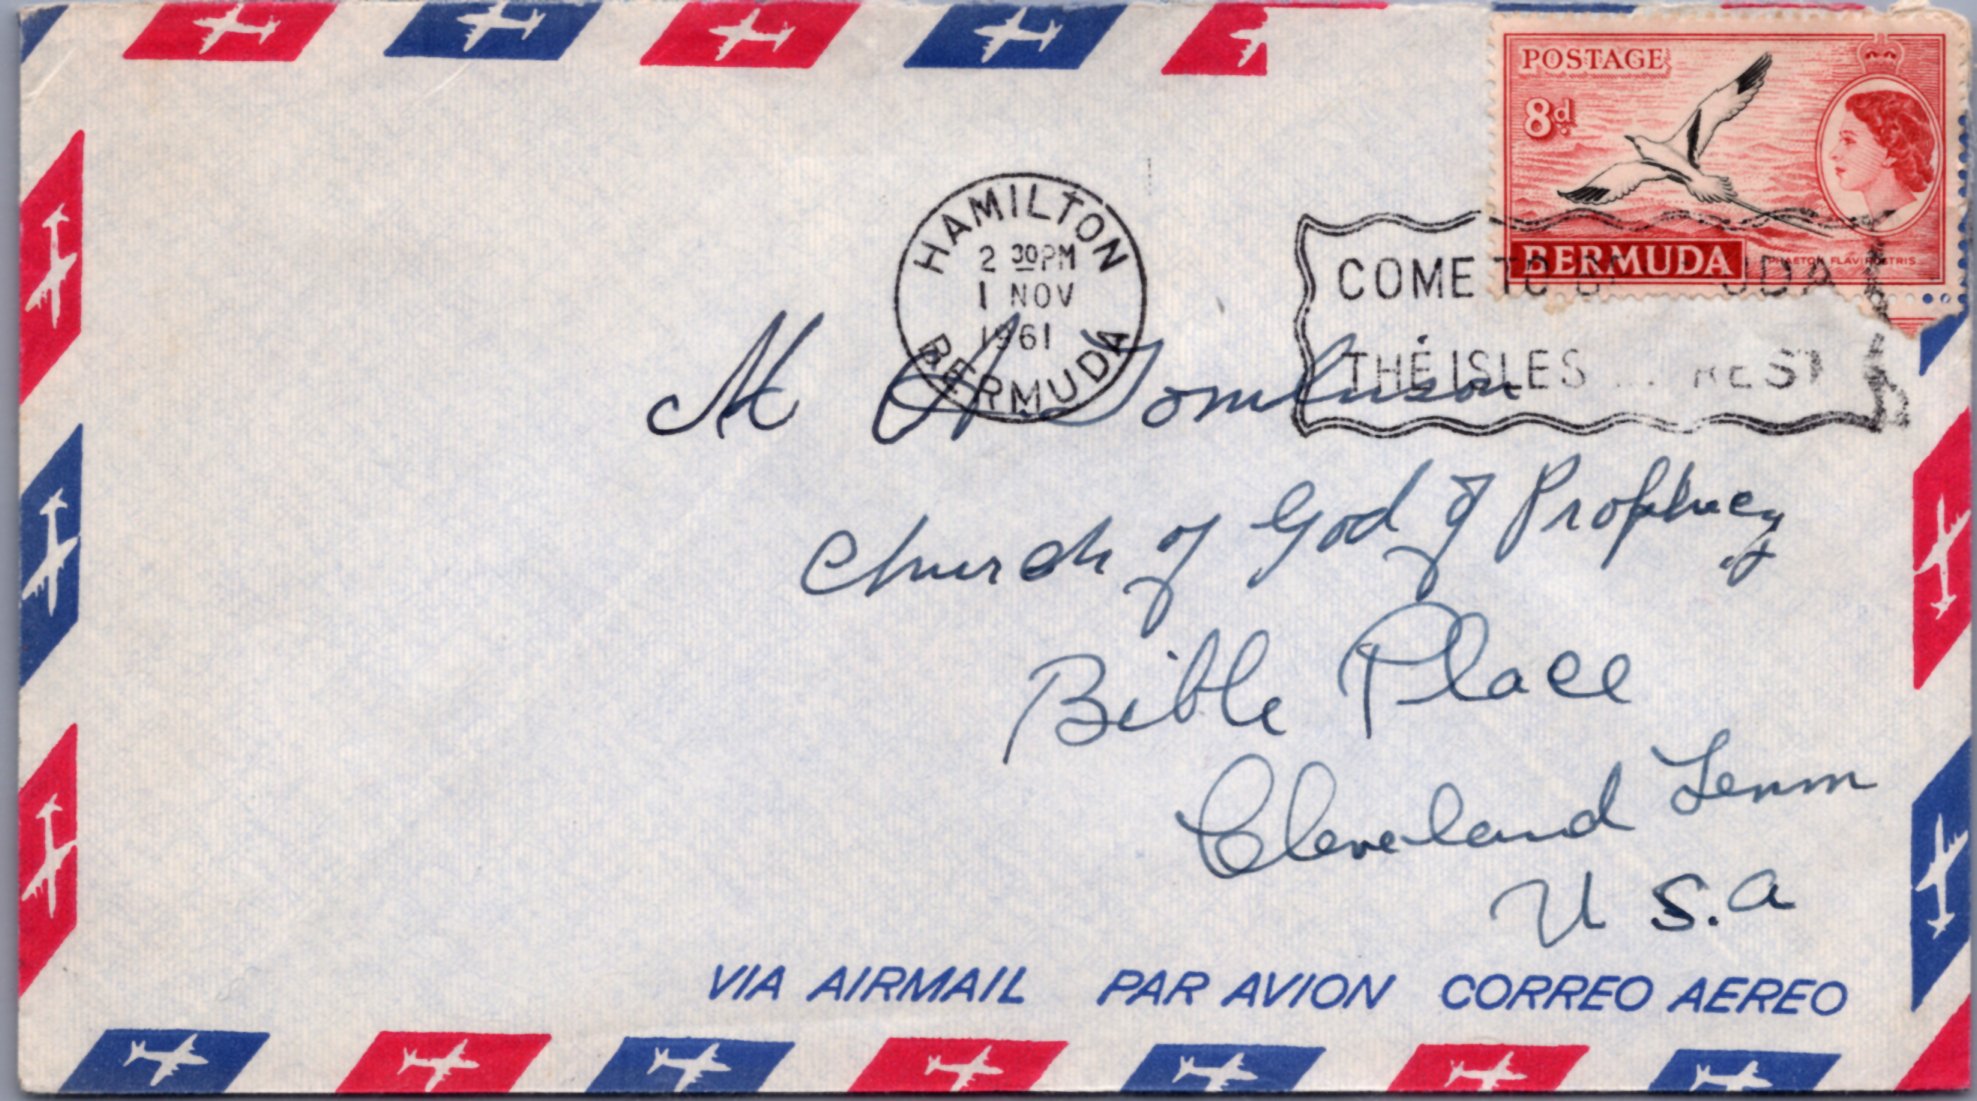 POSTAGE
8d
BERMUDA
HAMILTON
2 30PM
1 NOV
1961
BERMUDA
COME TO
THE ISLES REST
M A Tomlinson
Church of God of Prophecy
Bible Place
Cleveland Tenn
U S.A
VIA AIRMAIL PAR AVION CORREO AEREO